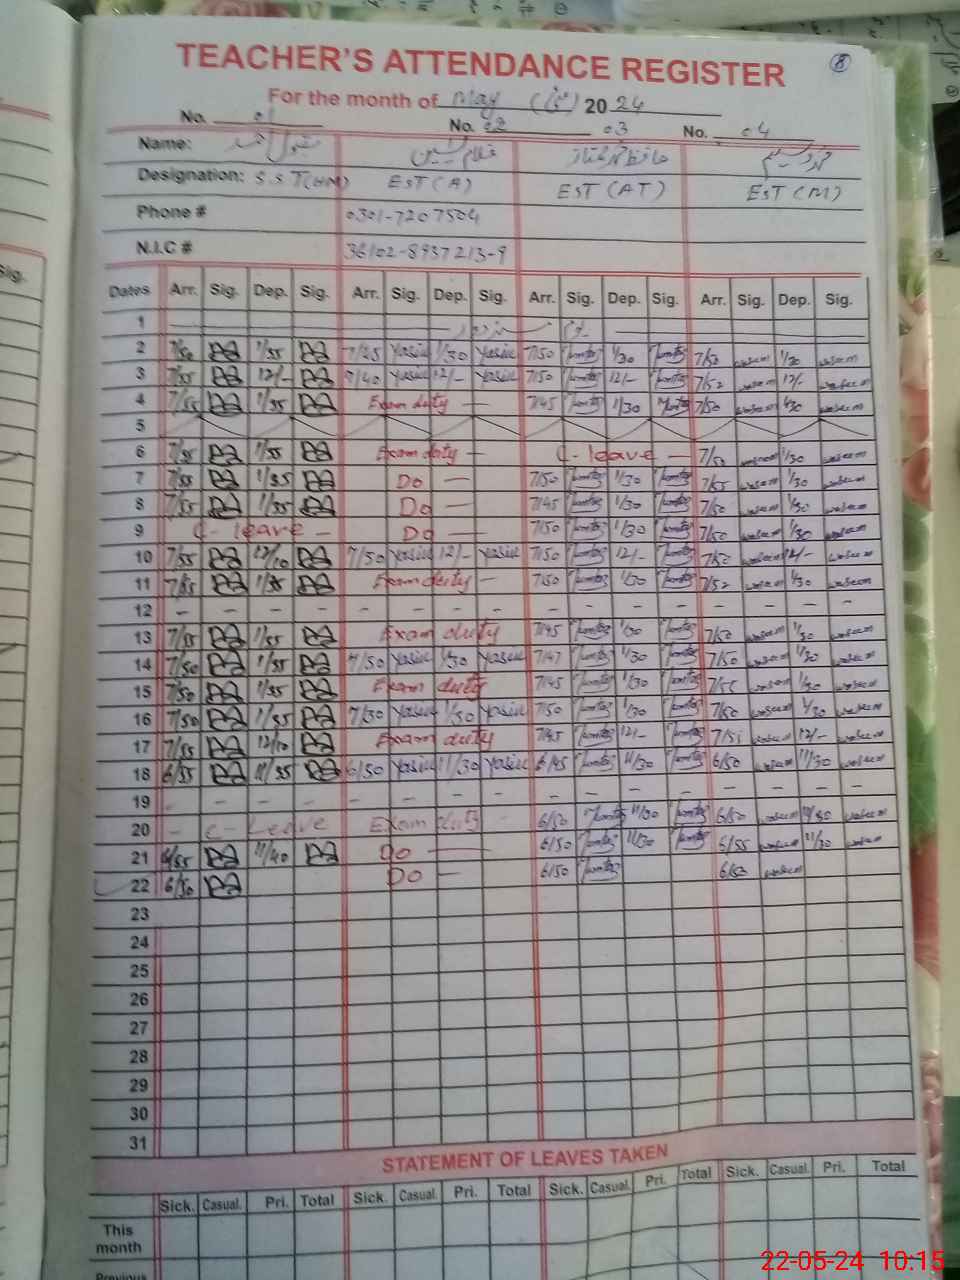 TEACHER'S ATTENDANCE REGISTER
8
For the month of May 2024
No. 01 No. 02 03 No. 04
Name: غلام یٰسین حافظ محمد ممتاز محمد وسیم
Designation: S.S.T(HM) EST(A) EST(AT) EST(M)
Phone # 0301-7207504
N.I.C # 36102-8937213-9
Dates Arr. Sig. Dep. Sig. Arr. Sig. Dep. Sig. Arr. Sig. Dep. Sig. Arr. Sig. Dep. Sig.
1 یوم مزدور
2 7/50 1/35 7/25 Yasin 1/30 Yasin 7/50 Mumtaz 1/30 Mumtaz 7/50 waseem 1/30 waseem
3 7/55 12/- 7/40 Yasin 12/- Yasin 7/50 Mumtaz 12/- Mumtaz 7/52 waseem 12/- waseem
4 7/55 1/35 Exam duty — 7/45 Mumtaz 1/30 Mumtaz 7/50 waseem 1/30 waseem
5
6 7/55 1/35 Exam duty — C-leave — 7/50 waseem 1/30 waseem
7 7/55 1/35 Do — 7/50 Mumtaz 1/30 Mumtaz 7/55 waseem 1/30 waseem
8 7/55 1/35 Do — 7/45 Mumtaz 1/30 Mumtaz 7/50 waseem 1/30 waseem
9 C-leave — Do — 7/50 Mumtaz 1/30 Mumtaz 7/50 waseem 1/30 waseem
10 7/55 12/10 7/50 Yasin 12/- Yasin 7/50 Mumtaz 12/- Mumtaz 7/50 waseem 12/- waseem
11 7/55 1/35 Exam duty — 7/50 Mumtaz 1/30 Mumtaz 7/52 waseem 1/30 waseem
12 - - - - - - - - - - - - - - - -
13 7/55 1/35 Exam duty 7/45 Mumtaz 1/30 Mumtaz 7/50 waseem 1/30 waseem
14 7/50 1/35 7/50 Yasin 1/30 Yasin 7/47 Mumtaz 1/30 Mumtaz 7/50 waseem 1/30 waseem
15 7/50 1/35 Exam duty 7/45 Mumtaz 1/30 Mumtaz waseem 1/30 waseem
16 7/50 1/35 7/30 Yasin 1/30 Yasin 7/50 Mumtaz 1/30 Mumtaz 7/50 waseem 1/30 waseem
17 7/55 12/10 Exam duty 7/45 Mumtaz 12/- Mumtaz 7/51 waseem 12/- waseem
18 6/55 11/35 6/50 Yasin 11/30 Yasin 6/45 Mumtaz 11/30 Mumtaz 6/50 waseem 11/30 waseem
19 - - - - - - - - - - - - - - - -
20 - C-Leave Exam duty - 6/50 Mumtaz 11/30 Mumtaz 6/50 waseem 11/30 waseem
21 6/55 11/40 Do — 6/50 Mumtaz 11/30 Mumtaz 6/55 waseem 11/30 waseem
22 6/50 Do — 6/50 Mumtaz 6/50 waseem
23
24
25
26
27
28
29
30
31
STATEMENT OF LEAVES TAKEN
Sick. Casual. Pri. Total Sick. Casual. Pri. Total Sick. Casual. Pri. Total Sick. Casual. Pri. Total
This
month
Previous
Sig.
22-05-24 10:15